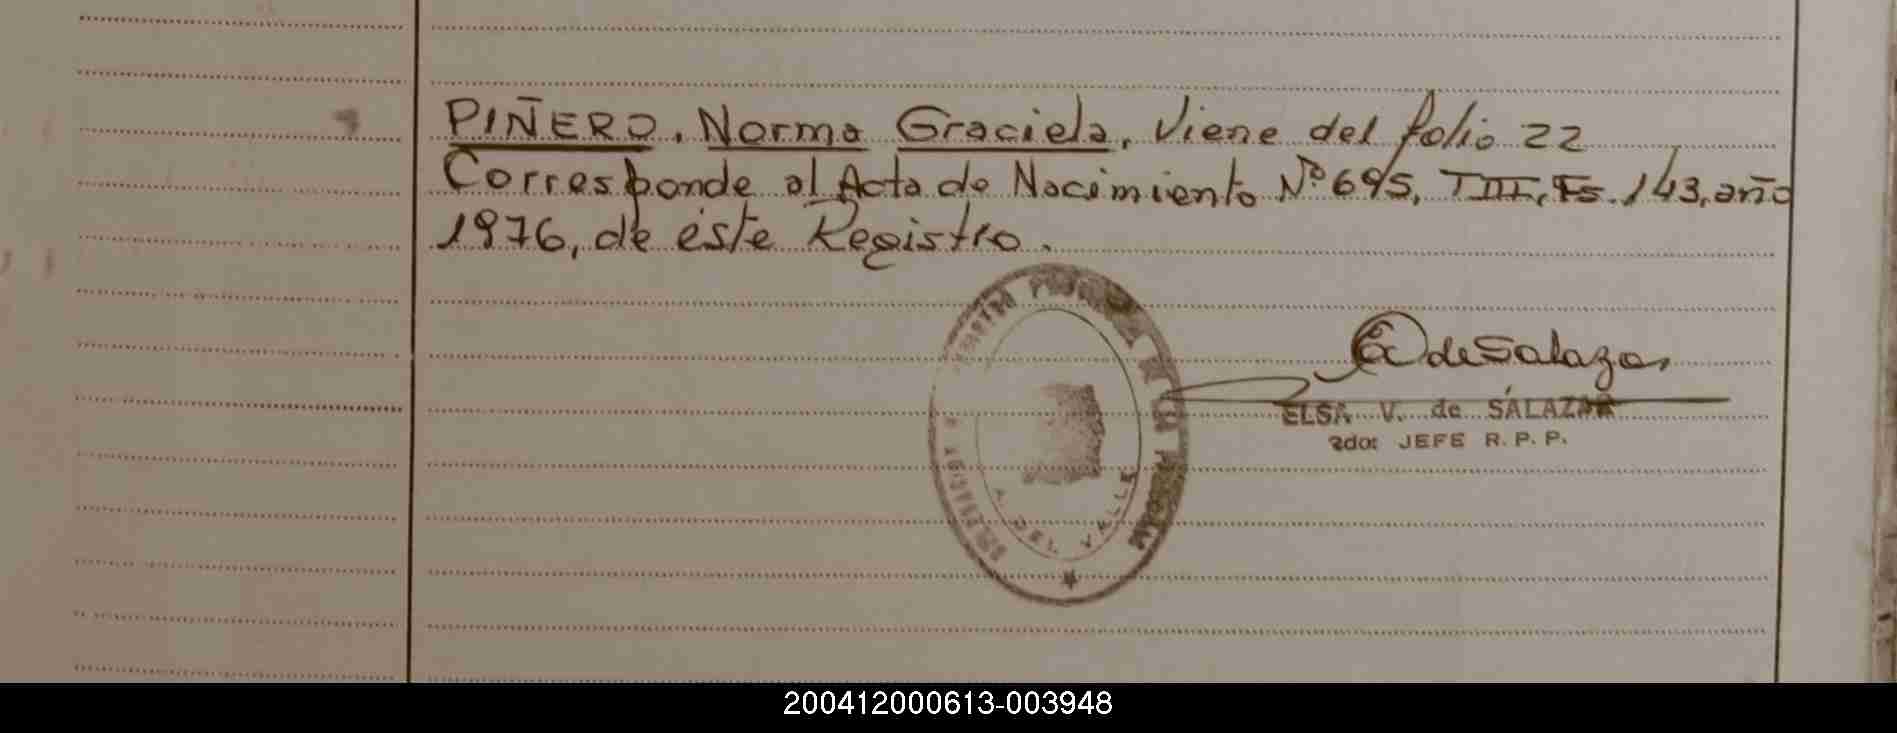 PIÑERO, Norma Graciela, Viene del folio 22
Corresponde al Acta de Nacimiento Nº 695, T III, Fs. 143, año
1976, de éste Registro.
E de Salazar
ELSA V. de SALAZAR
2do: JEFE R. P. P.
DEL VALLE
200412000613-003948